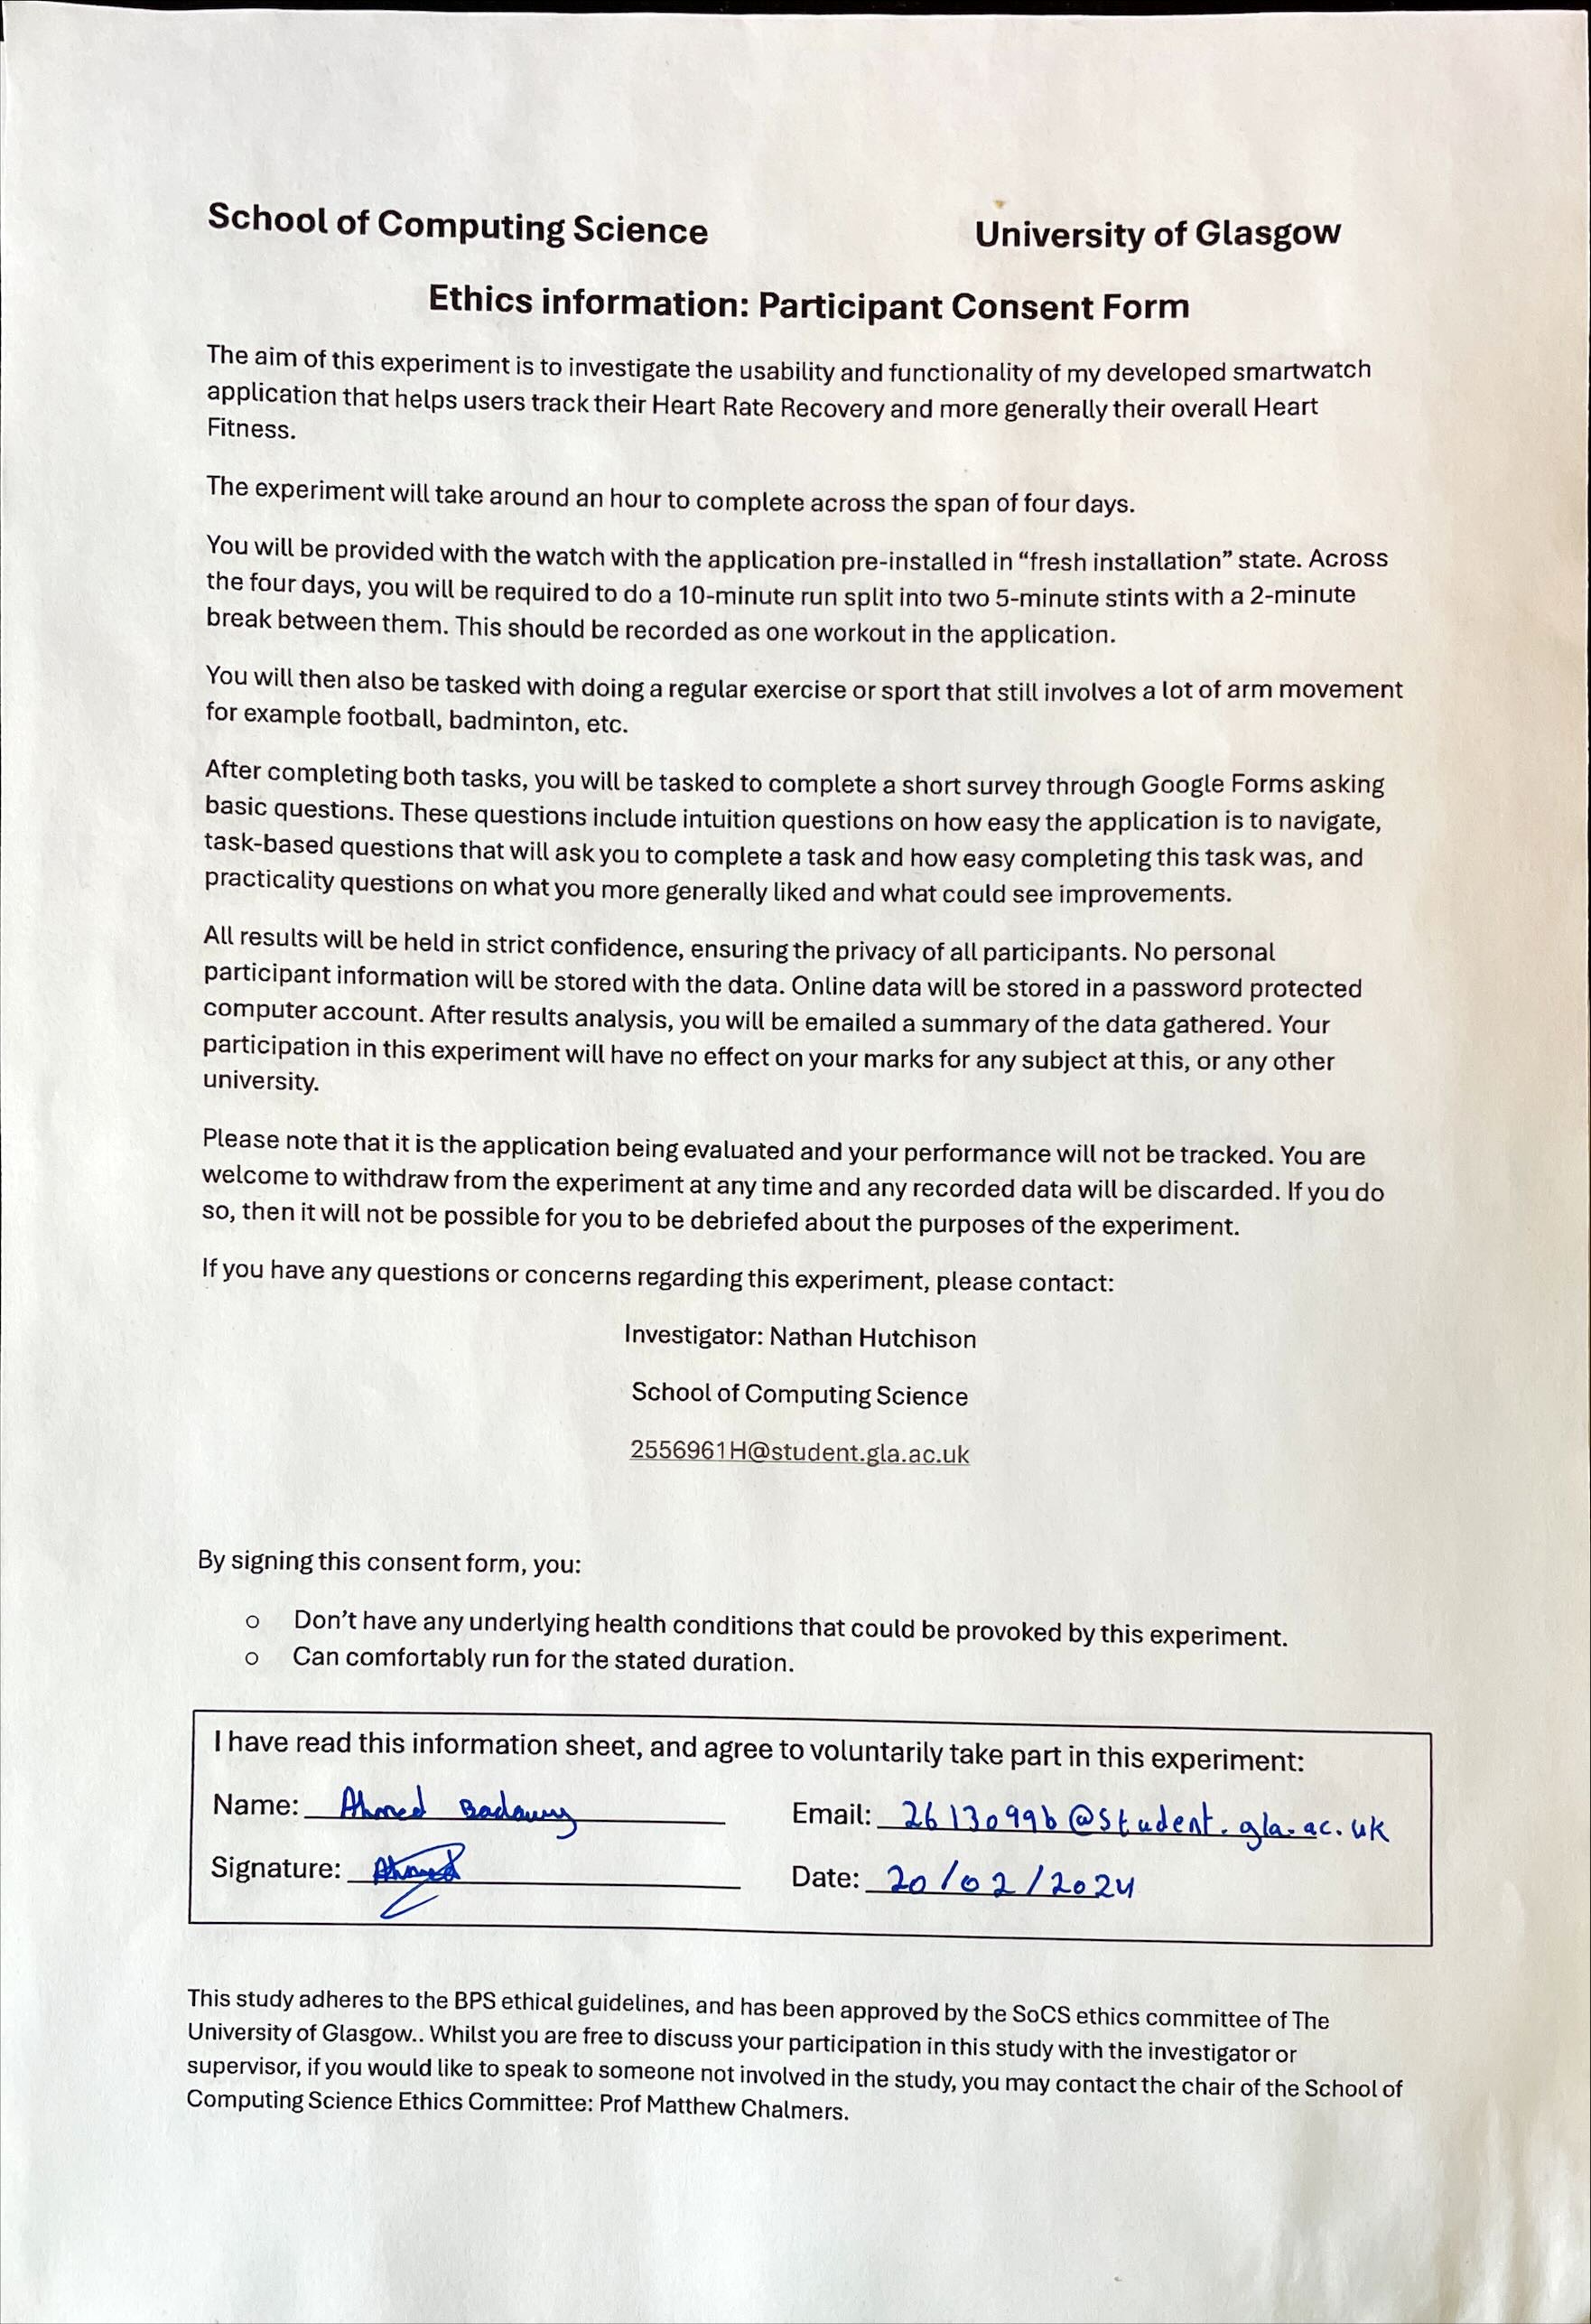 School of Computing Science University of Glasgow
Ethics information: Participant Consent Form
The aim of this experiment is to investigate the usability and functionality of my developed smartwatch
application that helps users track their Heart Rate Recovery and more generally their overall Heart
Fitness.
The experiment will take around an hour to complete across the span of four days.
You will be provided with the watch with the application pre-installed in “fresh installation” state. Across
the four days, you will be required to do a 10-minute run split into two 5-minute stints with a 2-minute
break between them. This should be recorded as one workout in the application.
You will then also be tasked with doing a regular exercise or sport that still involves a lot of arm movement
for example football, badminton, etc.
After completing both tasks, you will be tasked to complete a short survey through Google Forms asking
basic questions. These questions include intuition questions on how easy the application is to navigate,
task-based questions that will ask you to complete a task and how easy completing this task was, and
practicality questions on what you more generally liked and what could see improvements.
All results will be held in strict confidence, ensuring the privacy of all participants. No personal
participant information will be stored with the data. Online data will be stored in a password protected
computer account. After results analysis, you will be emailed a summary of the data gathered. Your
participation in this experiment will have no effect on your marks for any subject at this, or any other
university.
Please note that it is the application being evaluated and your performance will not be tracked. You are
welcome to withdraw from the experiment at any time and any recorded data will be discarded. If you do
so, then it will not be possible for you to be debriefed about the purposes of the experiment.
If you have any questions or concerns regarding this experiment, please contact:
Investigator: Nathan Hutchison
School of Computing Science
2556961H@student.gla.ac.uk
By signing this consent form, you:
o Don’t have any underlying health conditions that could be provoked by this experiment.
o Can comfortably run for the stated duration.
I have read this information sheet, and agree to voluntarily take part in this experiment:
Name: Ahmed Badawy Email: 2613099b@student.gla.ac.uk
Signature: Ahmed Date: 20/02/2024
This study adheres to the BPS ethical guidelines, and has been approved by the SoCS ethics committee of The
University of Glasgow.. Whilst you are free to discuss your participation in this study with the investigator or
supervisor, if you would like to speak to someone not involved in the study, you may contact the chair of the School of
Computing Science Ethics Committee: Prof Matthew Chalmers.